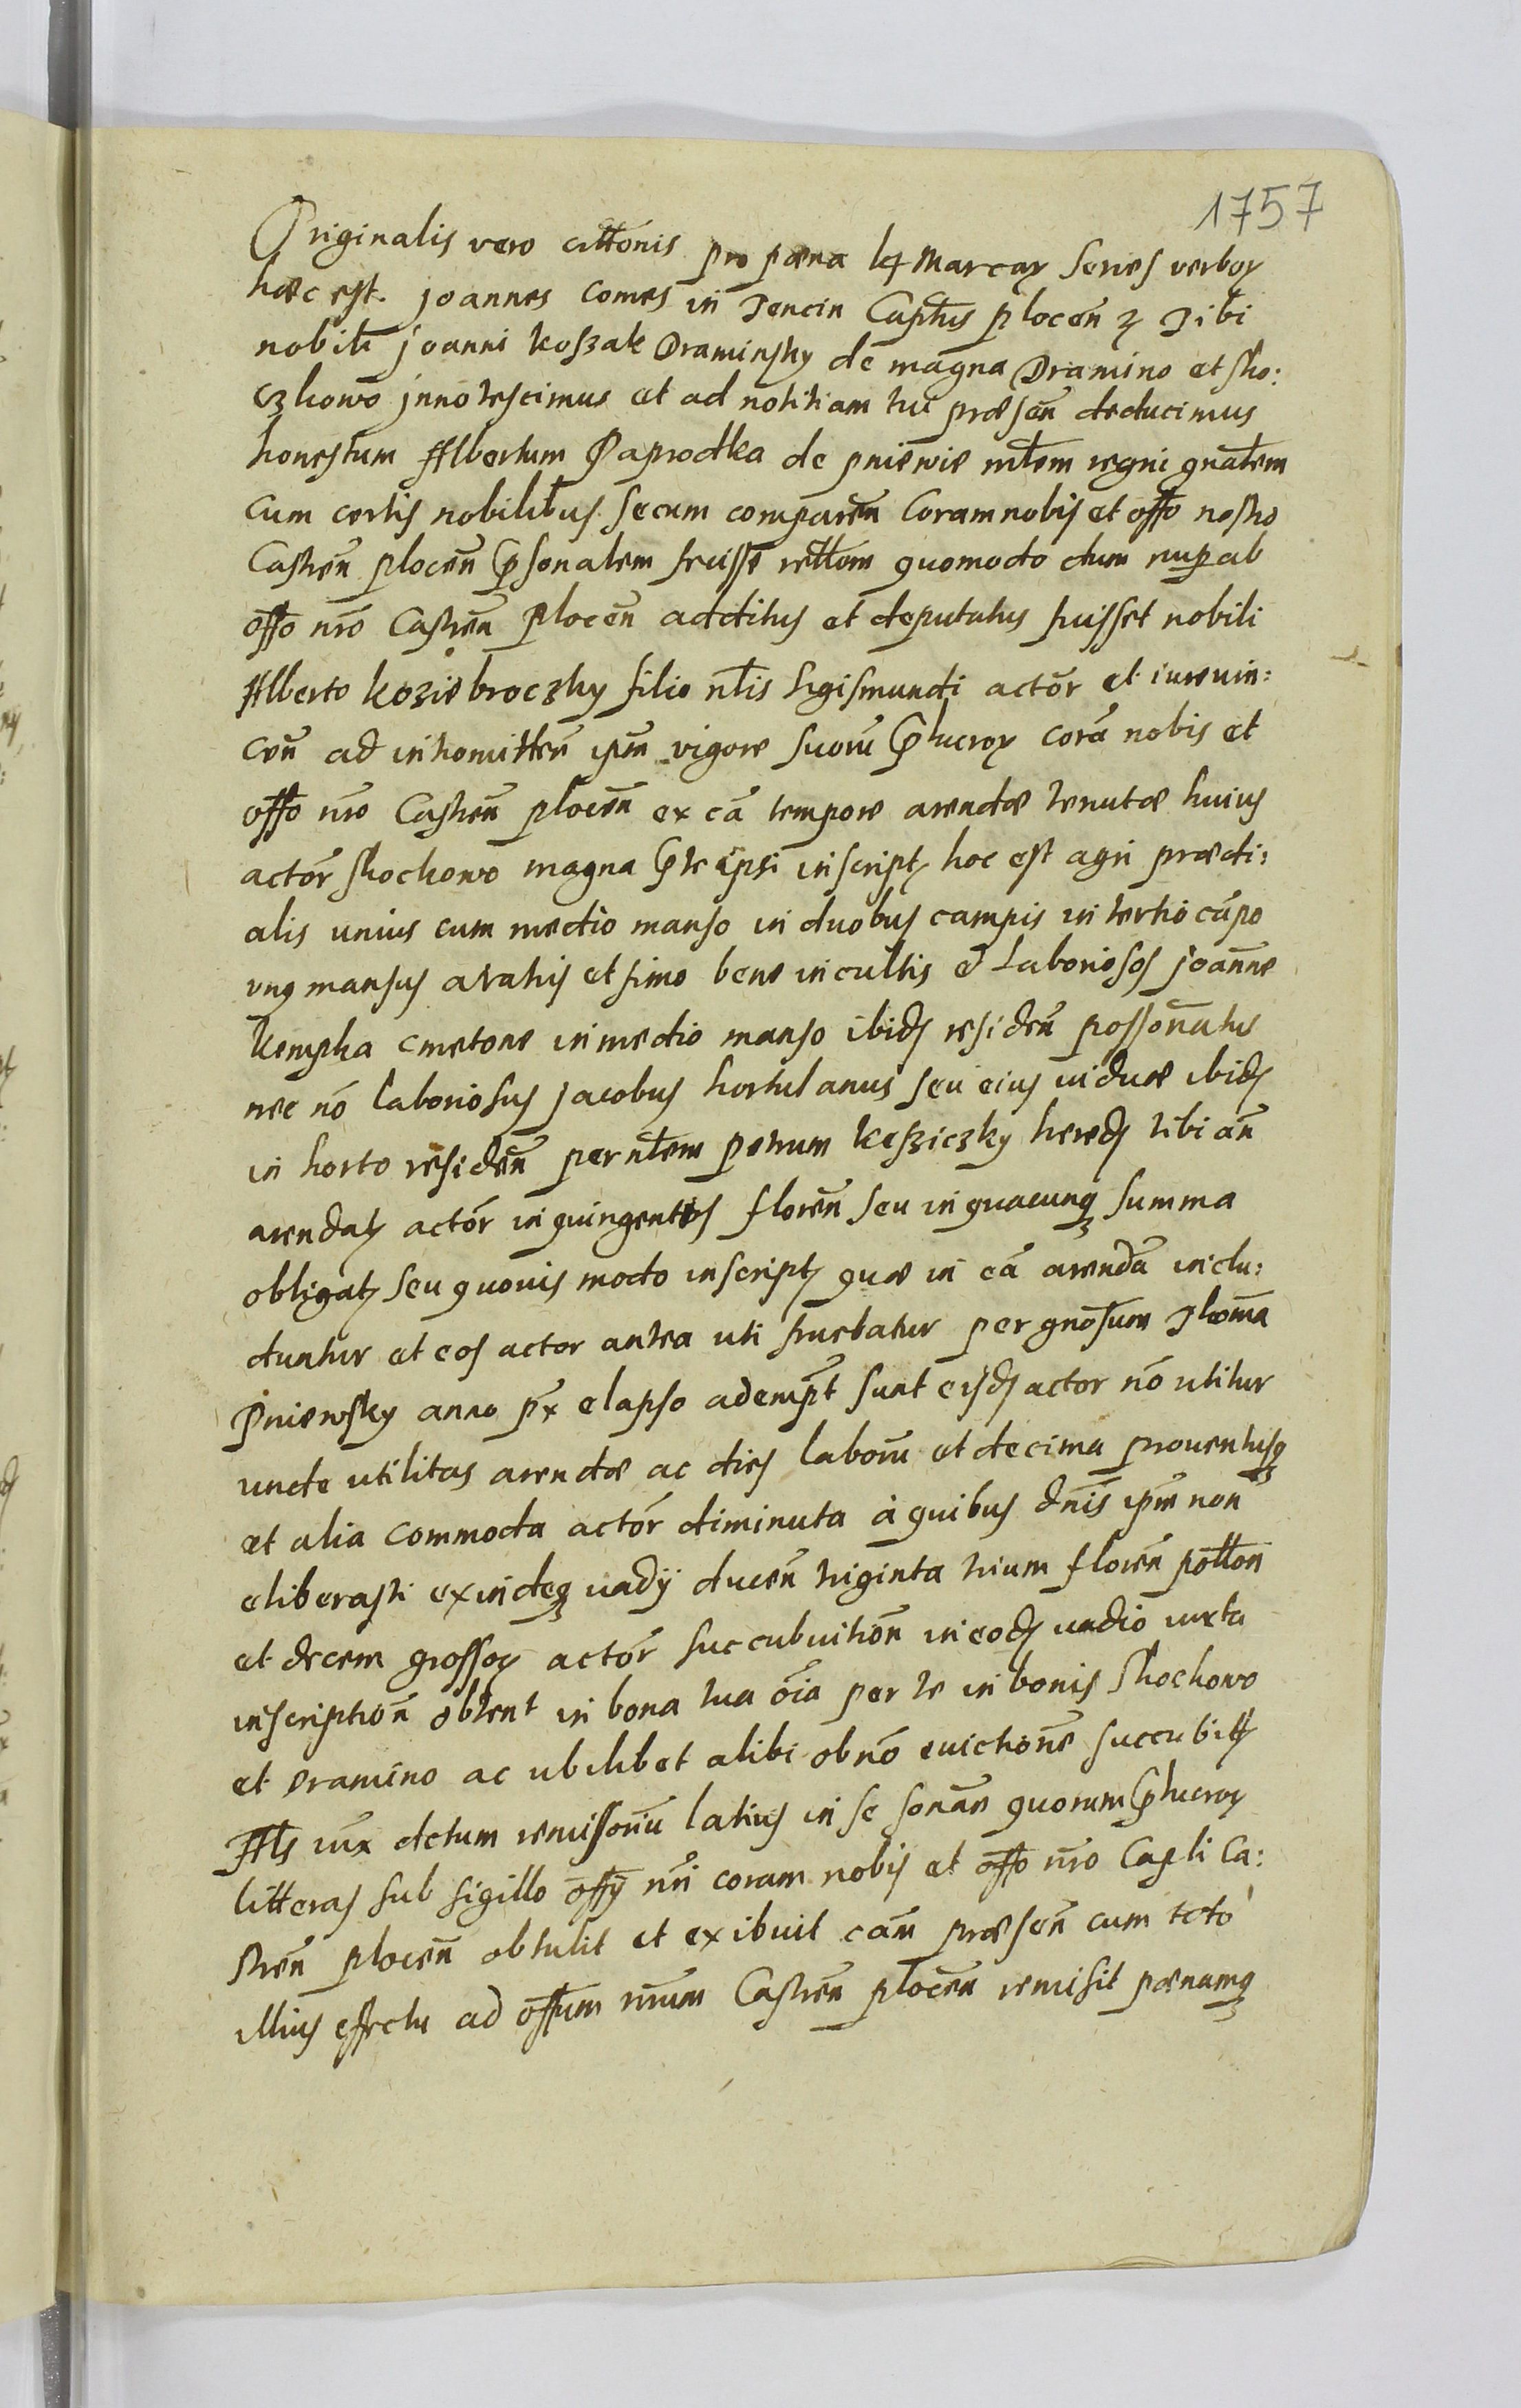 1757
Originalis vero cittōnis pro pæna 14 Marcaꝝ series verboꝝ
hæc est. Joannes Comes in Tencin Capt͞us plocen̄ ꝫ Tibi
nobili Joanni Koszak Draminsky de magna Dramino et Sko:
czkowo jnnotescimus et ad notitiam tui præsen̄ deducimus
honestum Albertum Paprodka de pniewie mīlem regni gnālem
cum certis nobilibus secum comparen̄ Coram nobis et offo nostro
Castren̄ plocen̄ ꝑsonalem fecisse rettōm quomodo dum nuꝑ ab
offo nr̄o Castren̄ Plocen̄ additus et deputatus fuisset nobili
Alberto Koziebroczky filio nt̄is Sigismundi actōr et iurevin:
cen̄ ad intromitten̄ ip̄m vigore suorū ꝑlucroꝝ corā nobis et
offo nr̄o Castren̄ plocen̄ ex eā tempore arendæ tenutæ huius
actōr Skochowo magna ꝑ te ipsi inscriptꝭ hoc est agri prædi:
alis unius cum medio manso in duobus campis in tertio cāpo
vnꝯ mansus aratis et fimo bene incultis & Laboriosos joānne
Kempka cmetone in medio manso ibidꝭ residen̄ possonatus
nec nō laboriosus Jacobus hortulanus seu eius viduæ ibidꝭ
in horto residen̄ per nt̄em petrum Kesziczky heredꝭ tibi an̄
arendatꝭ actōr in quingentos floren̄ seu in quacunqꝫ summa
obligatꝭ seu quouis modo inscriptꝭ quæ in eā arendā inclu:
duntur et eos actor antea uti fruebatur per gnōsum Thomā
Pniewsky anno px̄ elapso adempt̄ sunt eisdꝭ actor nō utitur
unde utilitas arendæ ac dies laborū et decima prouentusqꝫ
et alia commoda actōr diminuta à quibus dn̄is ip̄m non
eliberasti exindeqꝫ vadij ducen̄ triginta trium floren̄ pollōn
et decem grossoꝝ actōr succubuitiōn in eodꝭ vadio iuxta
inscriptiōn obtent in bona tua ōia per te in bonis Skochowo
et Dramino ac ubilibet alibi obnō euictiōne succubitꝭ
Alꝭ iux̄ actum remissoriū latius in se sonān quorum ꝑlucroꝝ
litteras sub sigillo offij nr̄i coram nobis et offo nr̄o Capli Ca:
stren̄ plocen̄ obtulit et exibuit cām præsen̄ cum toto
illius effectu ad offium nrūm Castren̄ plocen̄ remisit pænamqꝫ